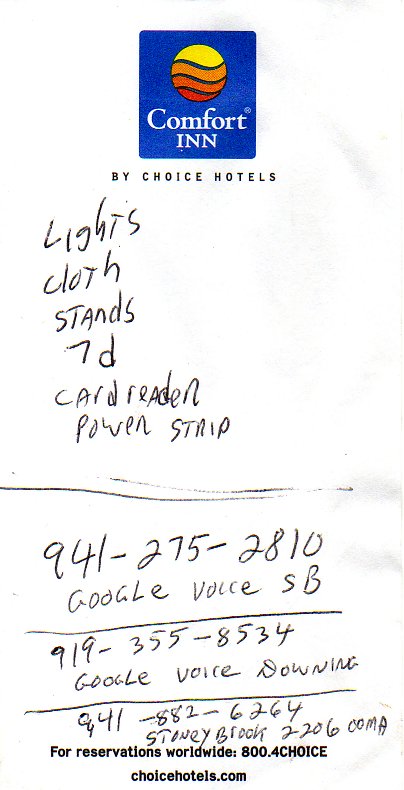 Comfort®
INN
BY CHOICE HOTELS
Lights
cloth
STANds
7d
CARdreAdeR
POweR STRIP
941-275-2810
GOOGLe VOICe SB
919-355-8534
GOOGLe VOICe DOWNING
941-882-6264
STONeY BROOK 2206
For reservations worldwide: 800.4CHOICE
choicehotels.com